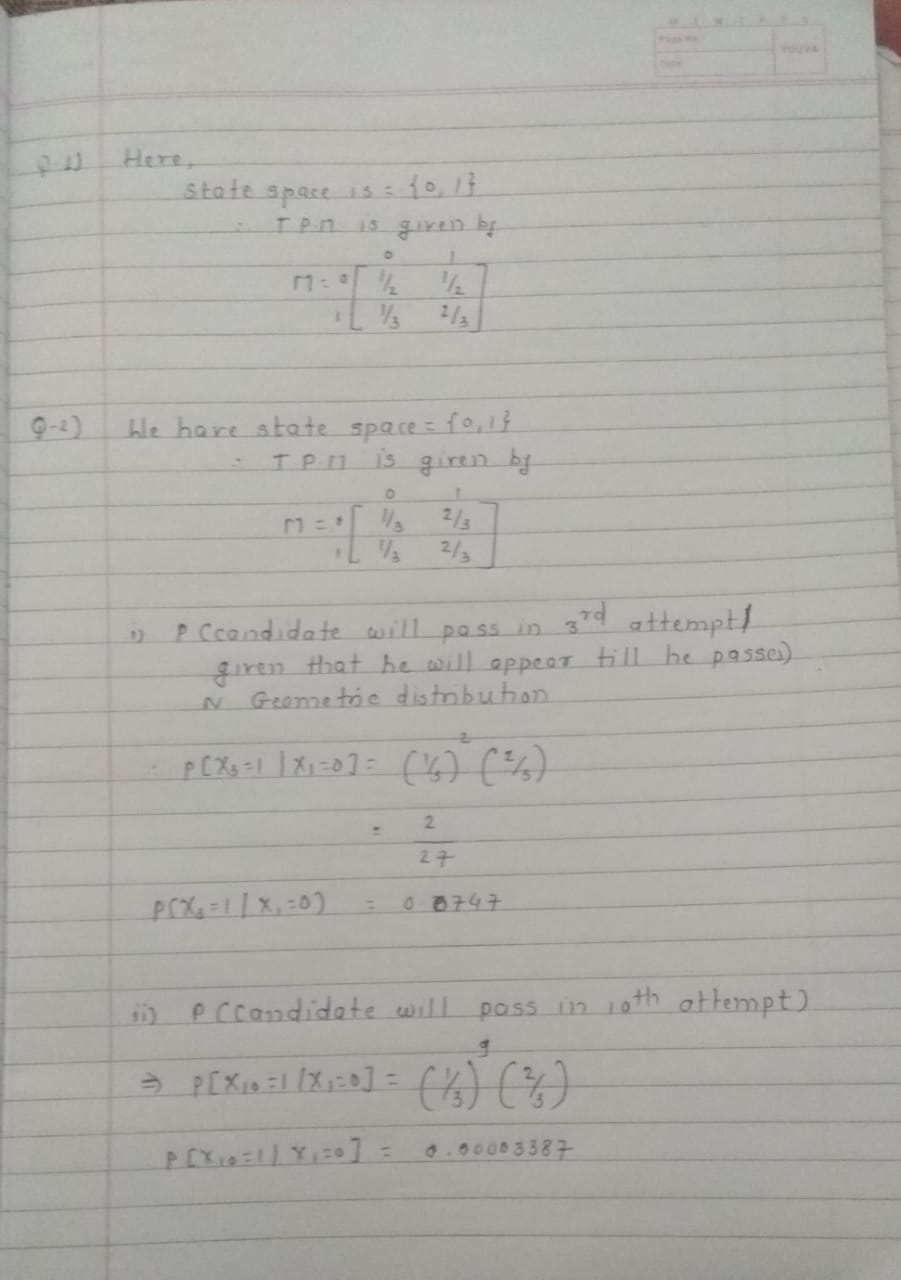 Page No.
Date
YOUVA
Q-1) Here,
State space is = {0, 1}
∴ T.P.M is given by
0 1
M = 0 [ 1/2 1/2
1 1/3 2/3 ]
Q-2) We have state space = {0, 1}
∴ T P M is given by
0 1
M = 0 [ 1/3 2/3
1 1/3 2/3 ]
i) P (candidate will pass in 3rd attempt /
given that he will appear till he passes)
~ Geometric distribution
∴ P[X₃=1 | X₁=0] = (1/3)² (2/3)
= 2
27
P(X₃=1 | X₁=0) = 0.0747
ii) P (Candidate will pass in 10th attempt)
⇒ P[X₁₀=1 / X₁=0] = (1/3)⁹ (2/3)
P[X₁₀=1 | X₁=0] = 0.00003387